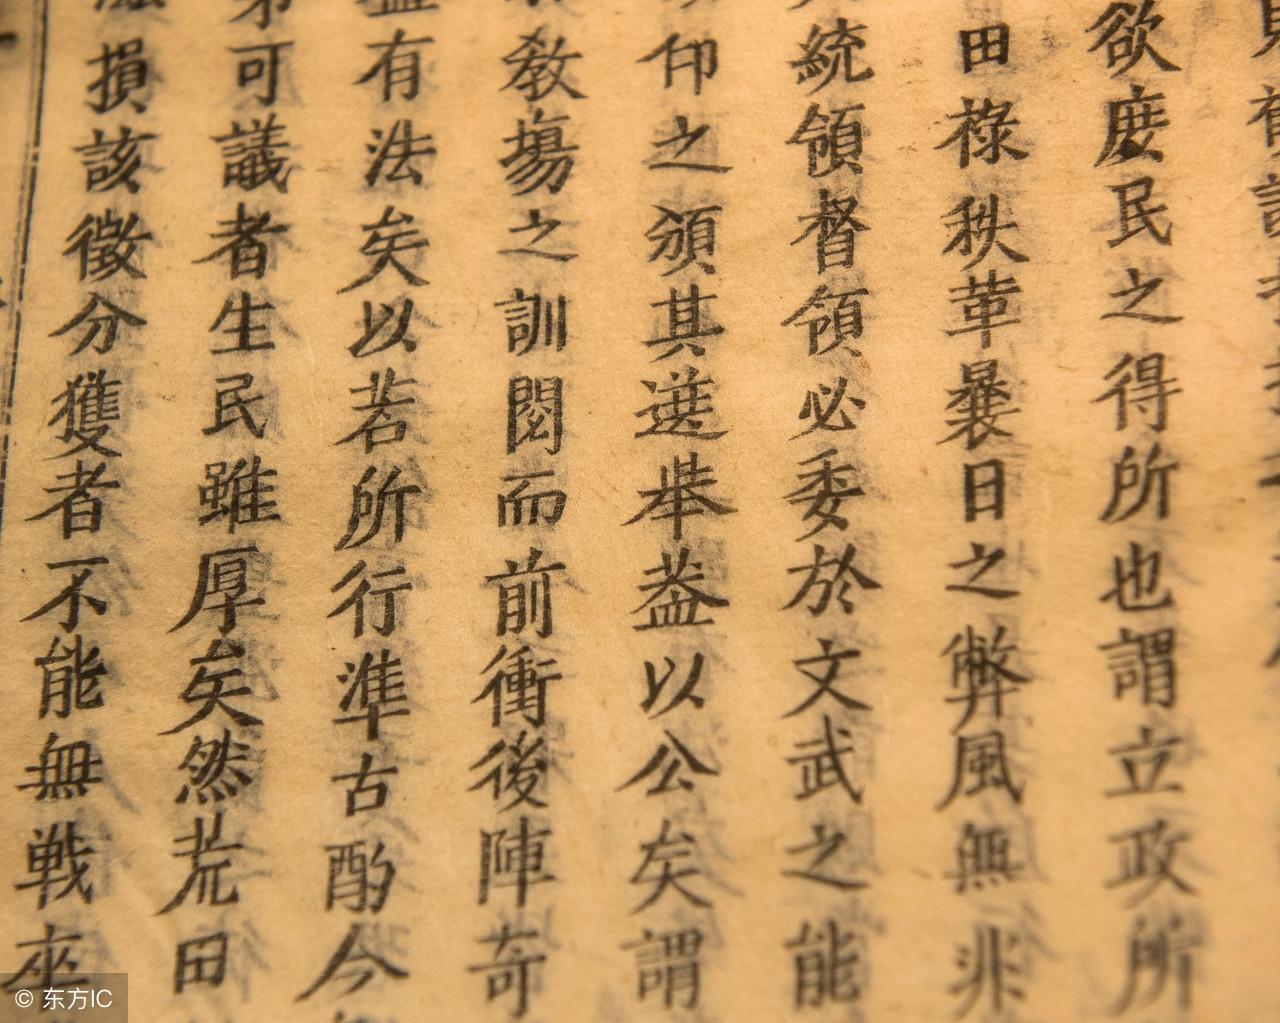 欲庶民之得所也謂立政所
田祿秩革曩日之弊風無非
統領督領必委於文武之能
仰之頒其選舉盖以公矣謂
敎場之訓閱而前衝後陣奇
有法矣以若所行準古酌今
可議者生民雖厚矣然荒田
損該徵分獲者不能無戦來
© 东方IC